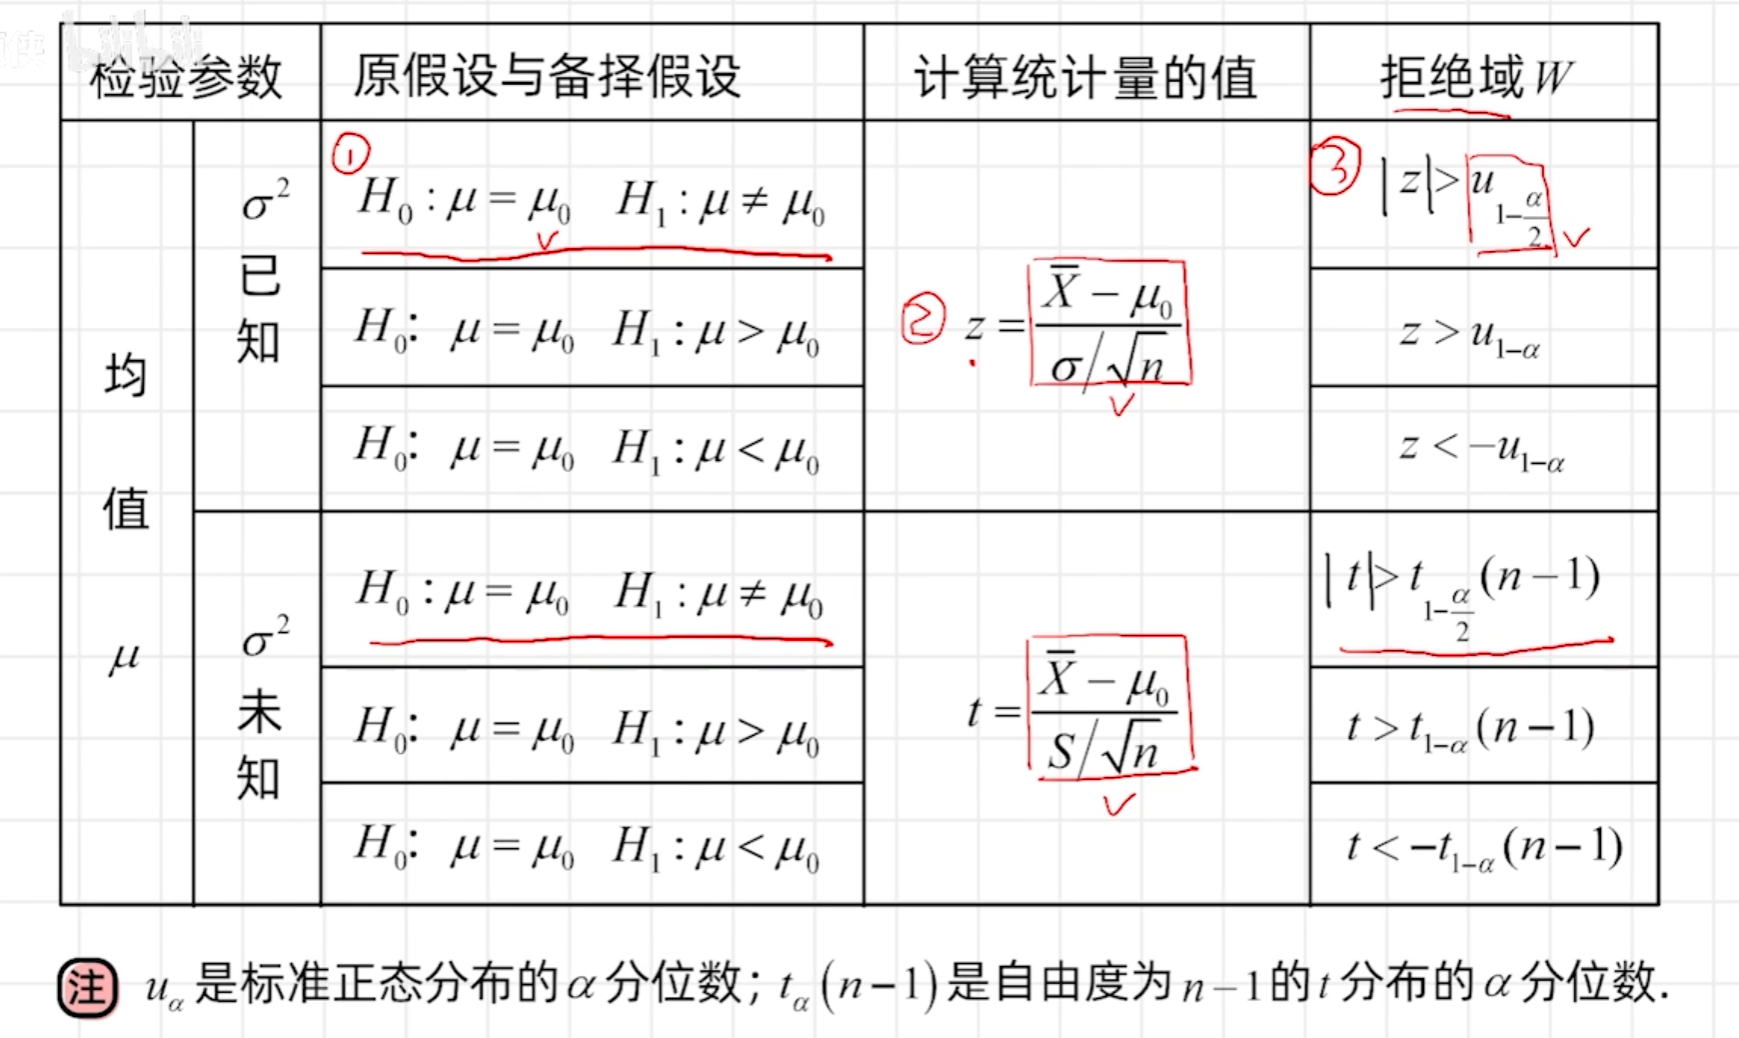 使 bilibili
检验参数 原假设与备择假设 计算统计量的值 拒绝域 W
均值 μ
σ² 已知
① H₀ : μ = μ₀ H₁ : μ ≠ μ₀ ③ |z| > u_{1-α/2}
H₀: μ = μ₀ H₁ : μ > μ₀ ② z = \frac{\overline{X} - μ₀}{σ/√n} z > u_{1-α}
H₀: μ = μ₀ H₁ : μ < μ₀ z < -u_{1-α}
σ² 未知
H₀ : μ = μ₀ H₁ : μ ≠ μ₀ |t| > t_{1-α/2}(n-1)
H₀: μ = μ₀ H₁ : μ > μ₀ t = \frac{\overline{X} - μ₀}{S/√n} t > t_{1-α}(n-1)
H₀: μ = μ₀ H₁ : μ < μ₀ t < -t_{1-α}(n-1)
注 u_α 是标准正态分布的 α 分位数；t_α(n-1) 是自由度为 n-1 的 t 分布的 α 分位数.